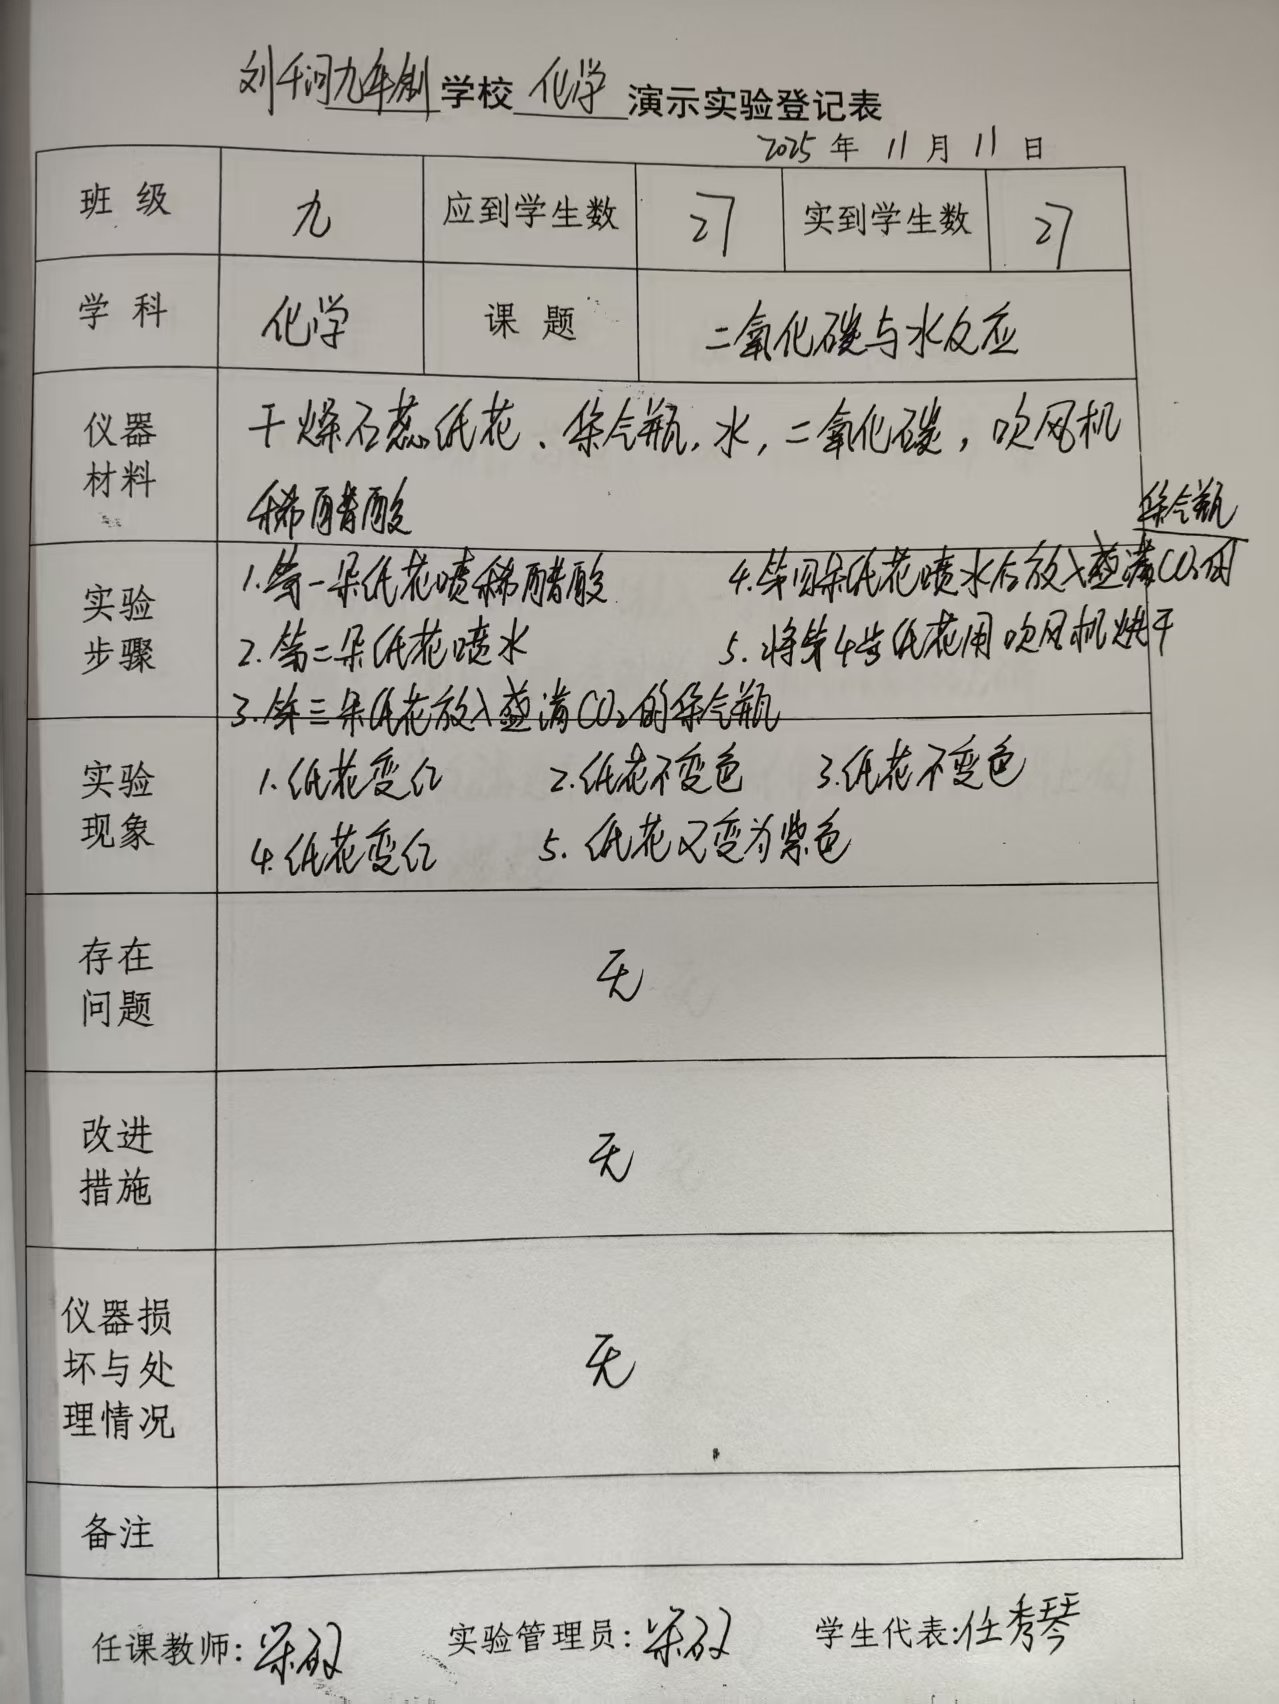 刘千河九年制学校 化学 演示实验登记表
2025 年 11 月 11 日
班 级 九 应到学生数 27 实到学生数 27
学 科 化学 课 题 二氧化碳与水反应
仪器
材料
干燥石蕊纸花、集气瓶,水,二氧化碳,吹风机
稀醋酸
实验
步骤
1.第一朵纸花喷稀醋酸
2.第二朵纸花喷水
3.第三朵纸花放入盛满CO₂的集气瓶
4.第四朵纸花喷水后放入盛满CO₂的
集气瓶
5.将第4步纸花用吹风机烘干
实验
现象
1.纸花变红 2.纸花不变色 3.纸花不变色
4.纸花变红 5.纸花又变为紫色
存在
问题
无
改进
措施
无
仪器损
坏与处
理情况
无
备注
任课教师: 实验管理员: 学生代表:任秀琴